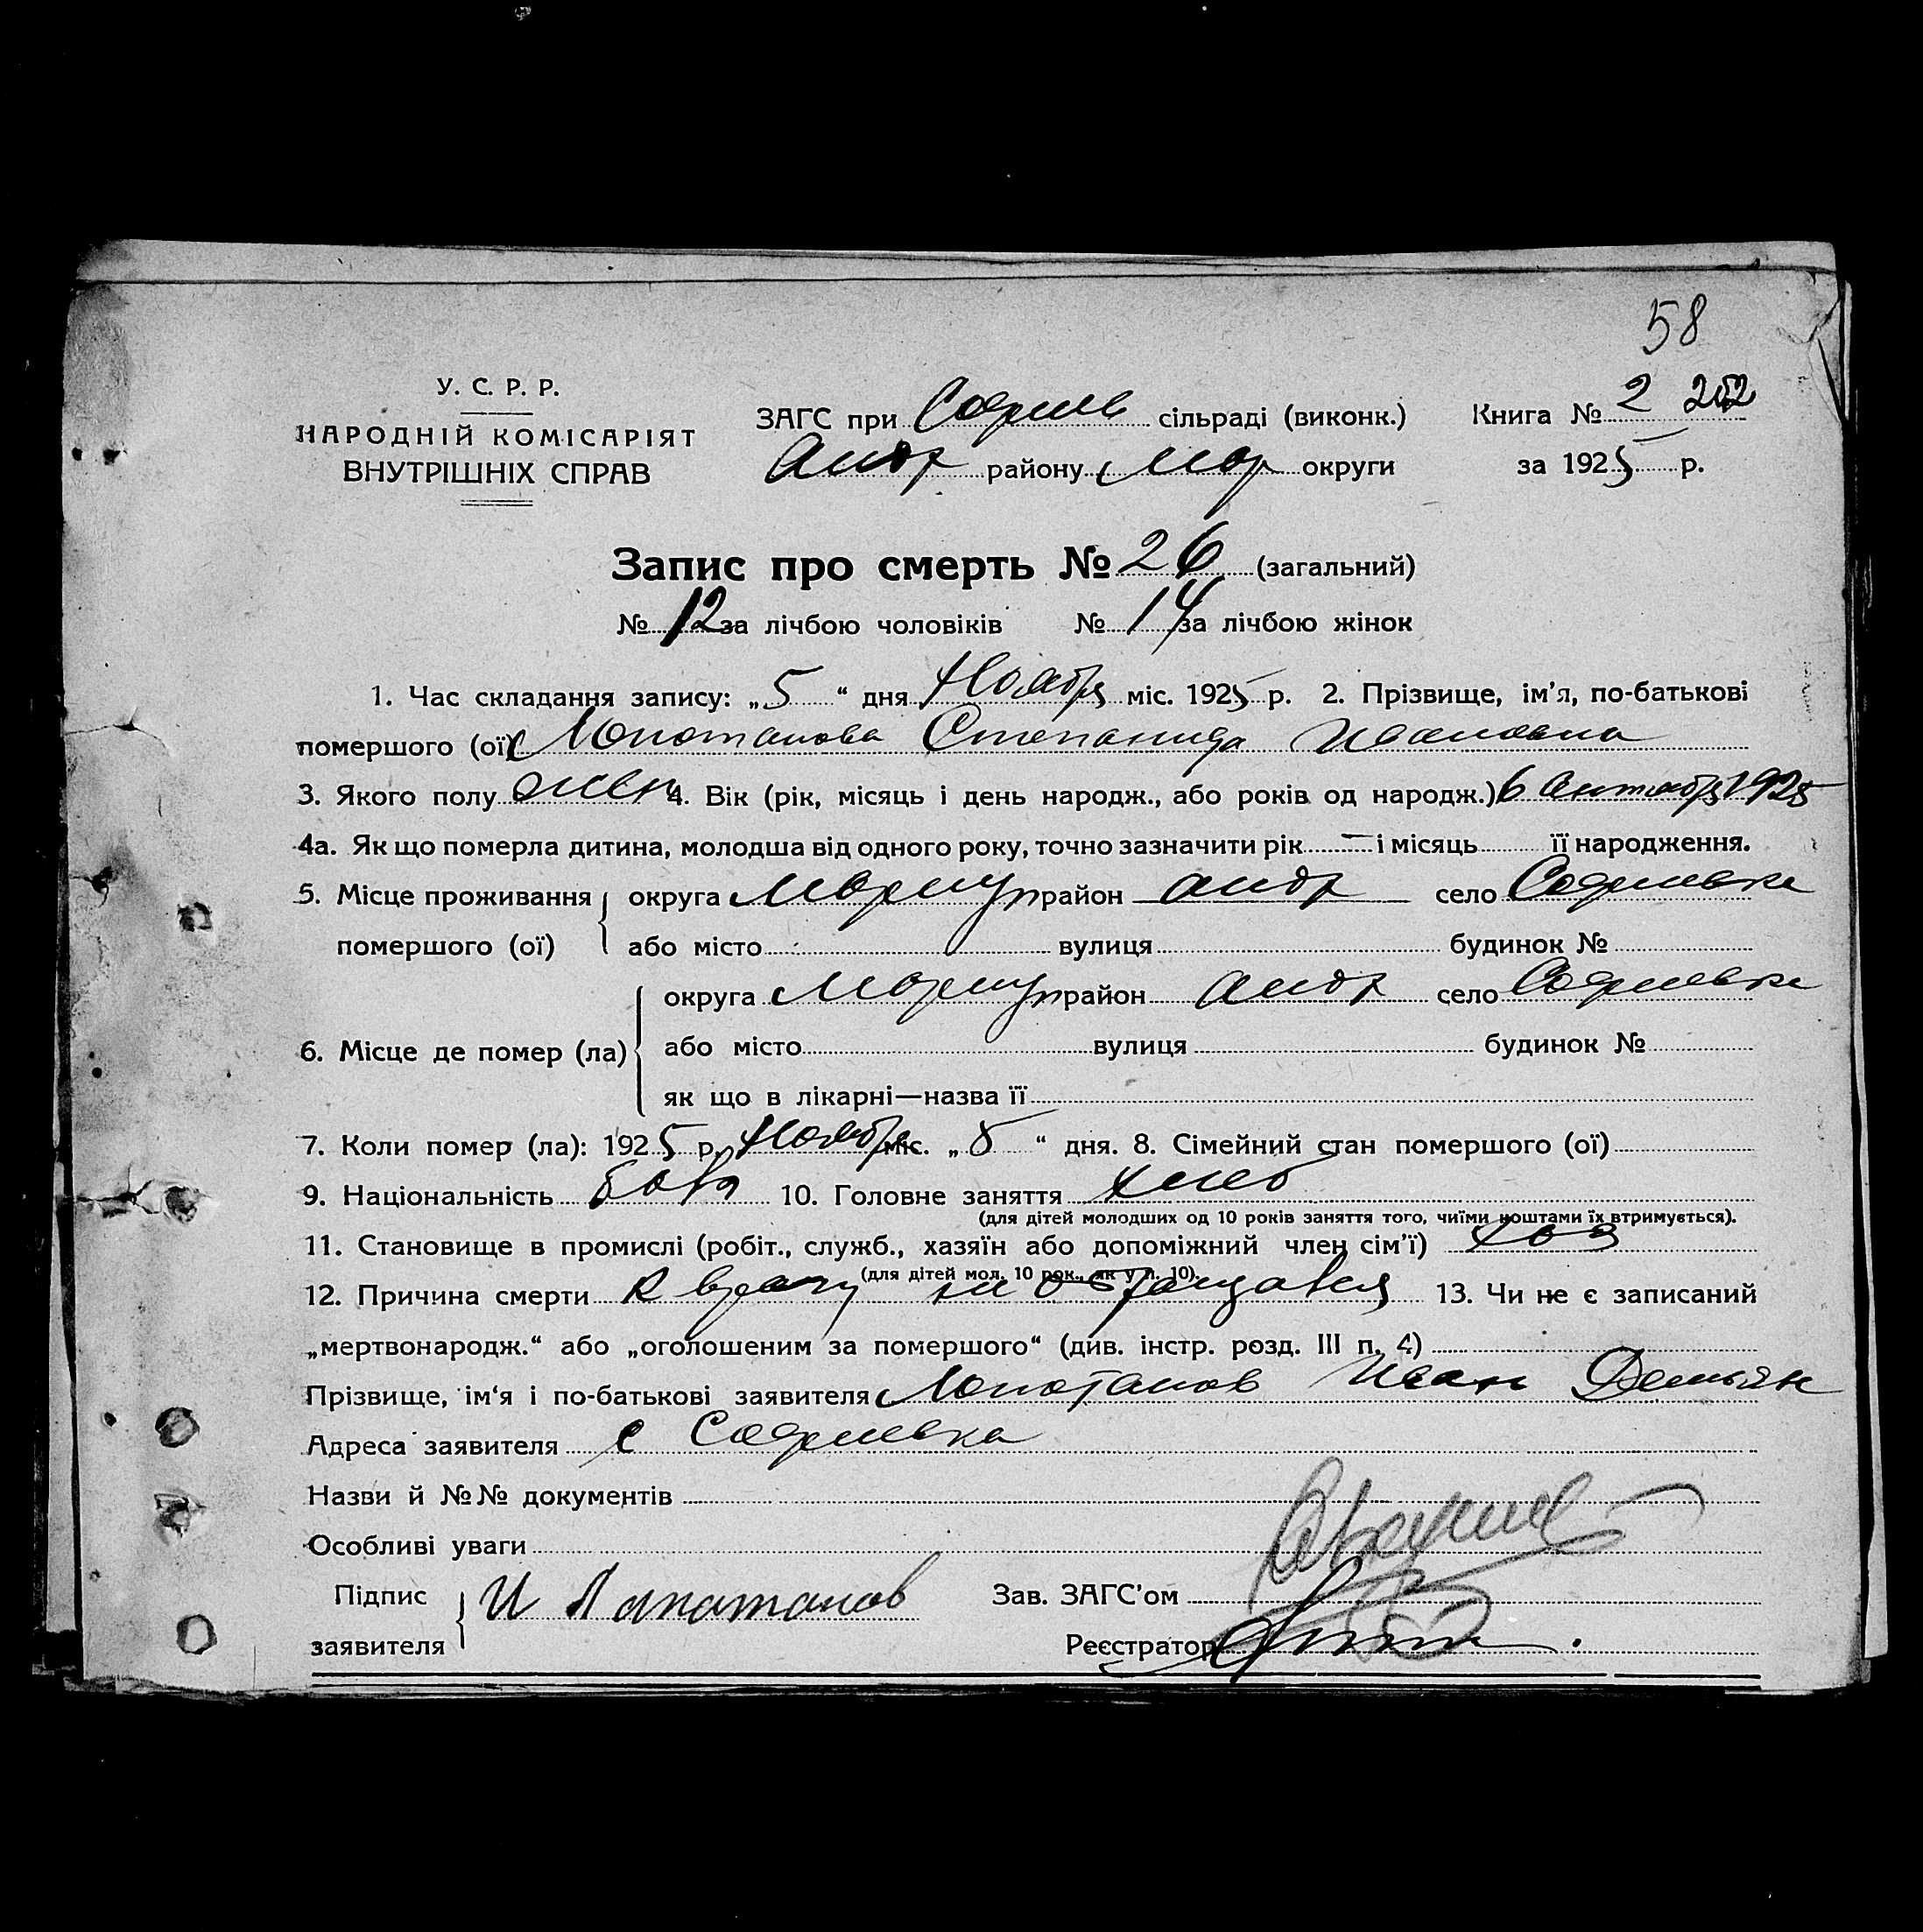 58
У. С. Р. Р.
НАРОДНІЙ КОМІСАРІЯТ
ВНУТРІШНІХ СПРАВ
ЗАГС при Софиев сільраді (виконк.)
Книга № 2 202
Андр району Мар округи
за 1925 р.
Запис про смерть № 26 (загальний)
№ 12 за лічбою чоловіків № 14 за лічбою жінок
1. Час складання запису: „5“ дня Ноября міс. 1925 р. 2. Прізвище, ім’я, по-батькові
помершого (ої) Лопотанова Степанида Ивановна
3. Якого полу жен 4. Вік (рік, місяць і день народж., або років од народж.) 6 1925
4а. Як що померла дитина, молодша від одного року, точно зазначити рік — і місяць її народження.
5. Місце проживання округа Мариуп район Андр село Софиевка
помершого (ої) або місто вулиця будинок №
округа Мариуп район Андр село Софиевка
6. Місце де помер (ла) або місто вулиця будинок №
як що в лікарні—назва її
7. Коли помер (ла): 1925 р. Ноября міс. „5“ дня. 8. Сімейний стан помершого (ої)
9. Національність 10. Головне заняття хлеб
(для дітей молодших од 10 років заняття того, чиїми коштами їх втримується).
11. Становище в промислі (робіт., служб., хазяїн або допоміжний член сім’ї) хоз
(для дітей мол. 10 рок., як у п. 10).
12. Причина смерти К врачу не обращался 13. Чи не є записаний
„мертвонародж.“ або „оголошеним за помершого“ (див. інстр. розд. III п. 4)
Прізвище, ім‘я і по-батькові заявителя Лопотанов Иван Демьян
Адреса заявителя с Софиевка
Назви й №№ документів
Особливі уваги
Підпис И Лапатанов Зав. ЗАГС’ом
заявителя Реєстратор